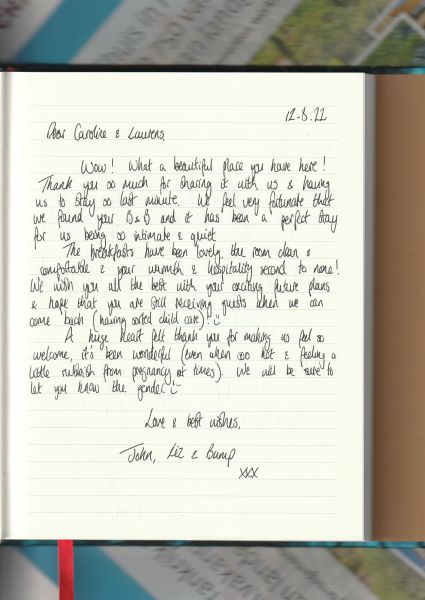 12-8.22
Dear Caroline & Laurens,
Wow! What a beautiful place you have here!
Thank you so much for sharing it with us & having
us to stay so last minute. We feel very fortunate that
we found your B&B and it has been a perfect stay
for us being so intimate & quiet.
The breakfasts have been lovely, the room clean &
comfortable & your warmth & hospitality second to none!
We wish you all the best with your exciting future plans
& hope that you are still receiving guests when we can
come back (having sorted child care)!
A huge heart felt thank you for making us feel so
welcome, it's been wonderful (even when so hot & feeling a
little rubbish from pregnancy at times). We will be sure to
let you know the gender!
Love & best wishes,
John, Liz & Bump
xxx